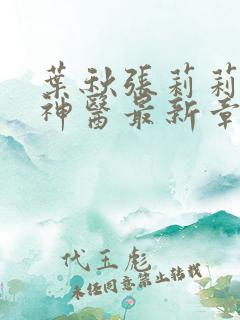 葉秋張莉莉
神醫最新章
代玉彪
未經同意禁止轉載